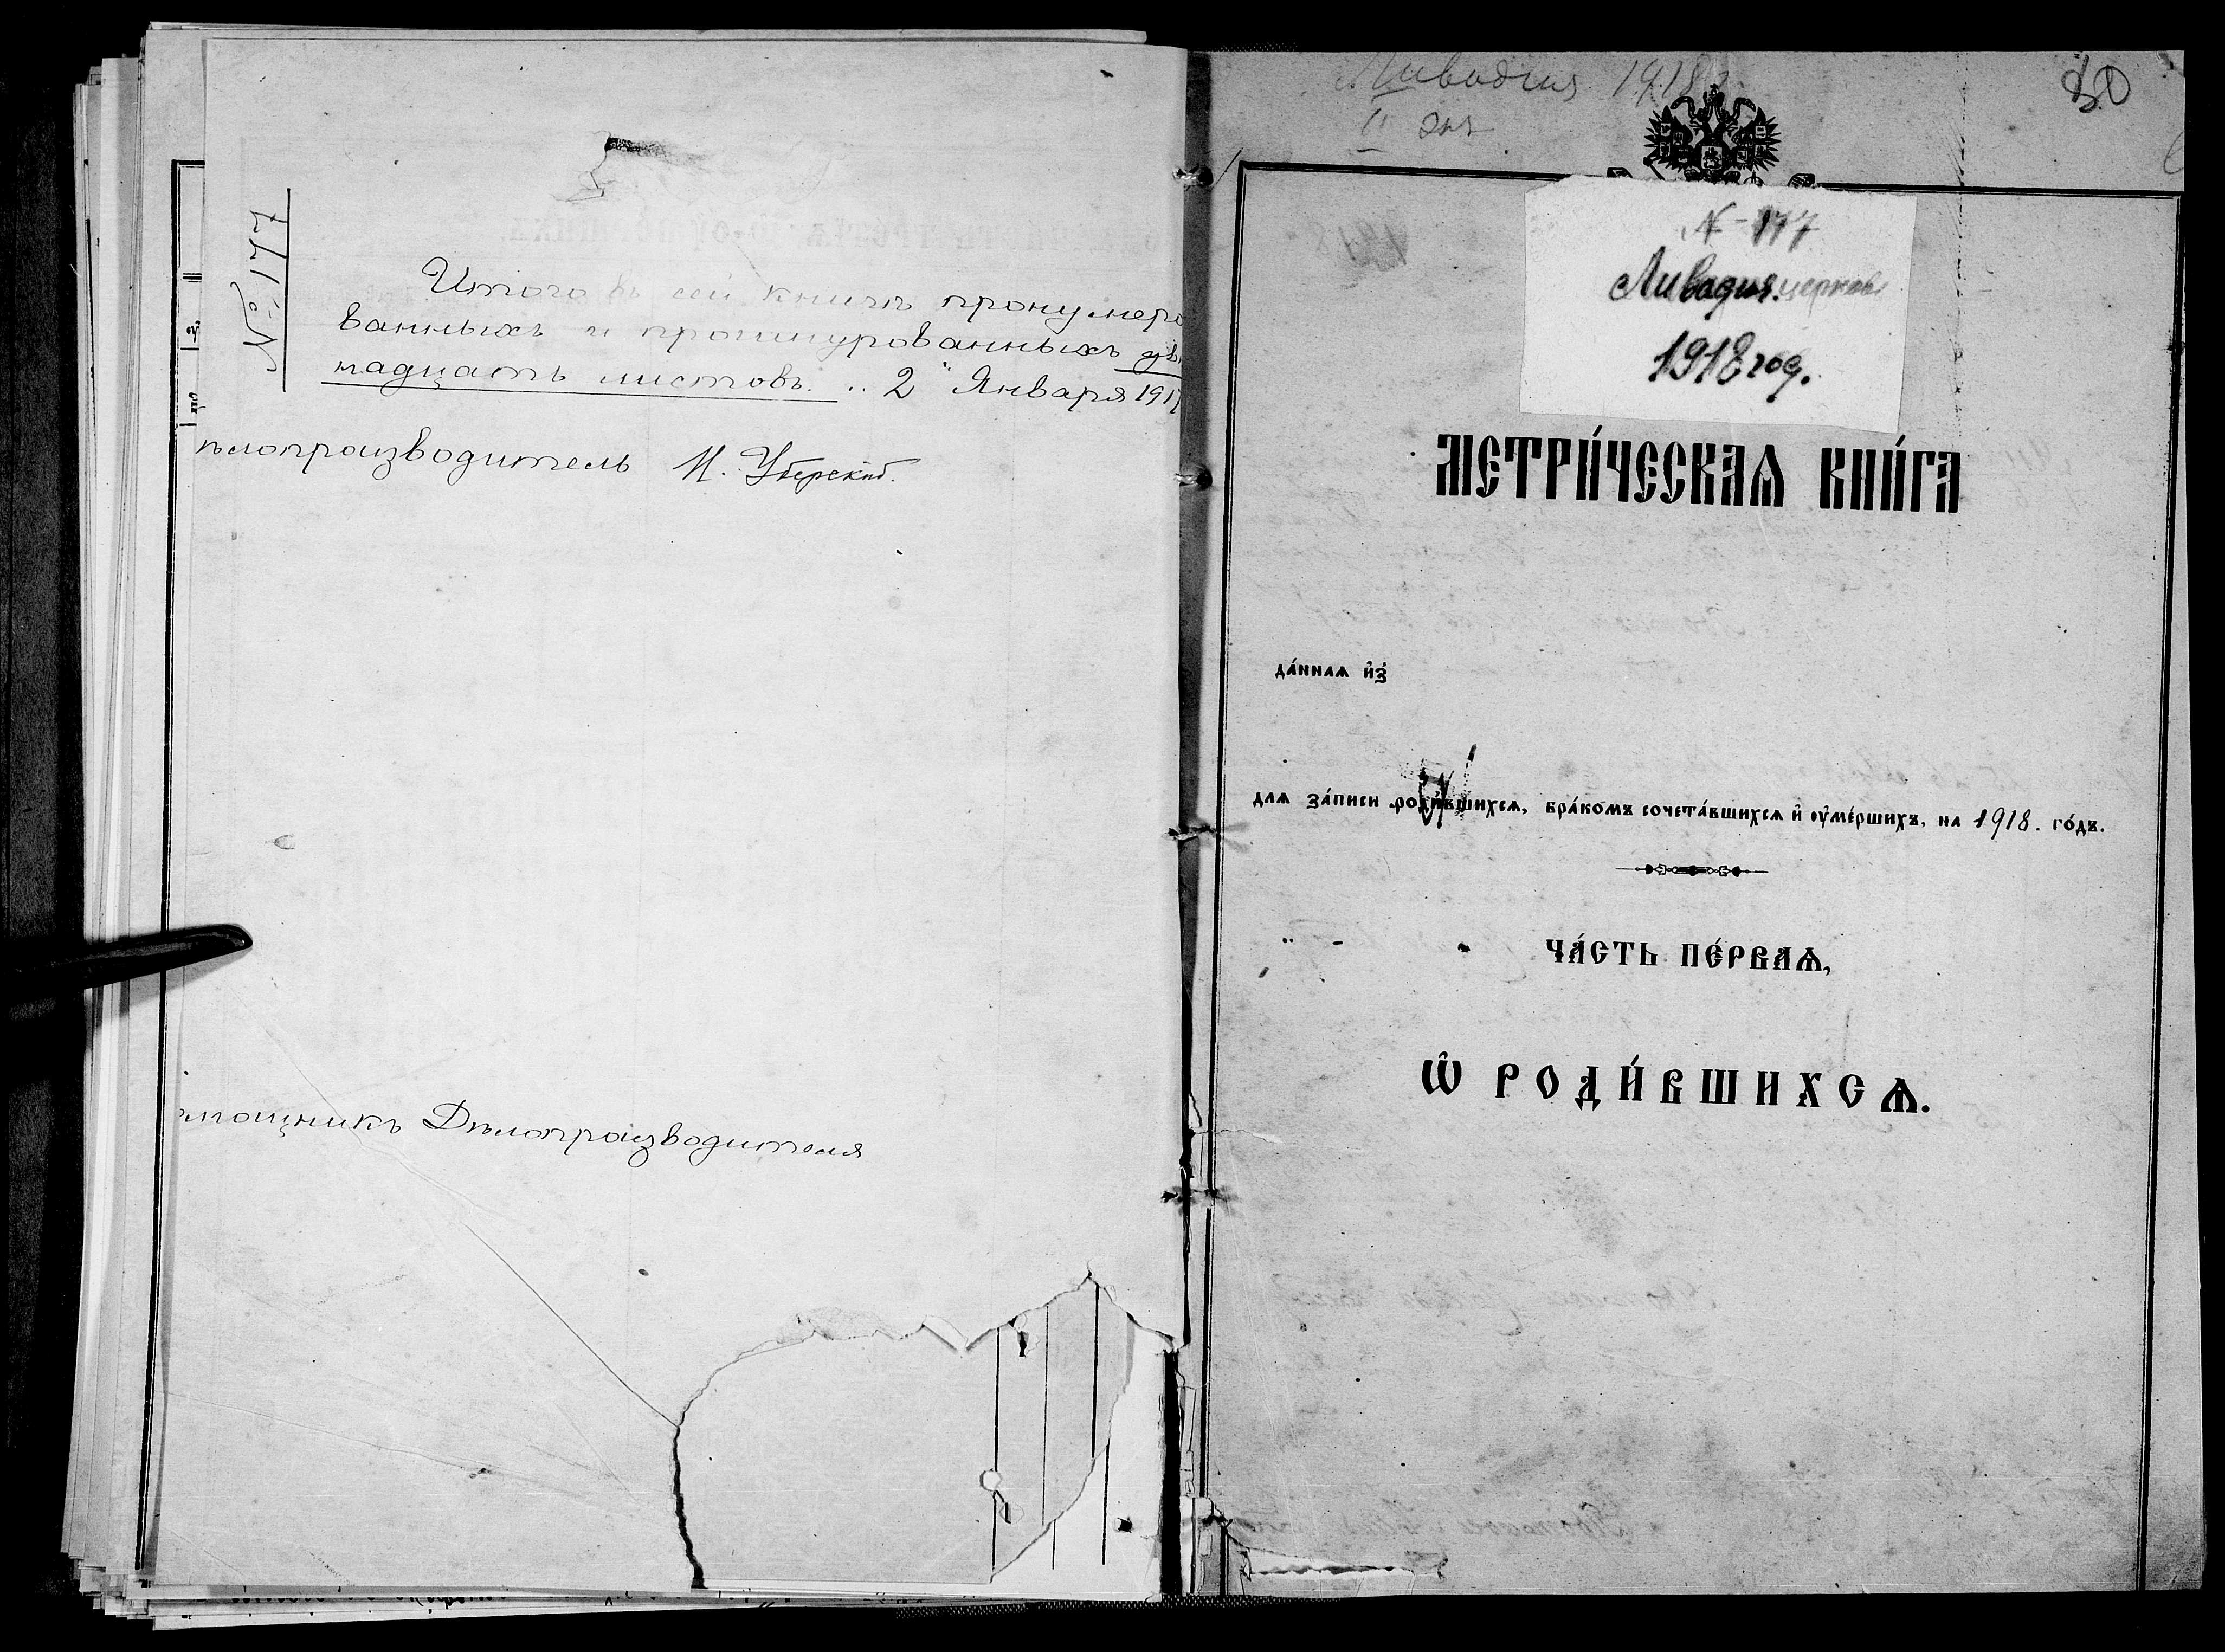 № 177
Итого въ сей книгѣ пронумеро
ванныхъ и прошнурованныхъ двѣ
надцать листовъ. „2“ Января 191
ѣлопроизводитель И.
мощникъ Дѣлопроизводителя
Ливадия 1918
II экз
50
N-177
Ливадия. церковь
1918 год.
МЕТРИ́ЧЕСКАѦ КНИ́ГА
да́ннаѧ и҆з̾
длѧ за́писи роди́вшихсѧ, бра́комъ сочета́вшихсѧ и҆ оу҆ме́ршихъ, на 1918. го́дъ.
ЧА́СТЬ ПЕ́РВАѦ,
Ѽ РОДИ́ВШИХСѦ.